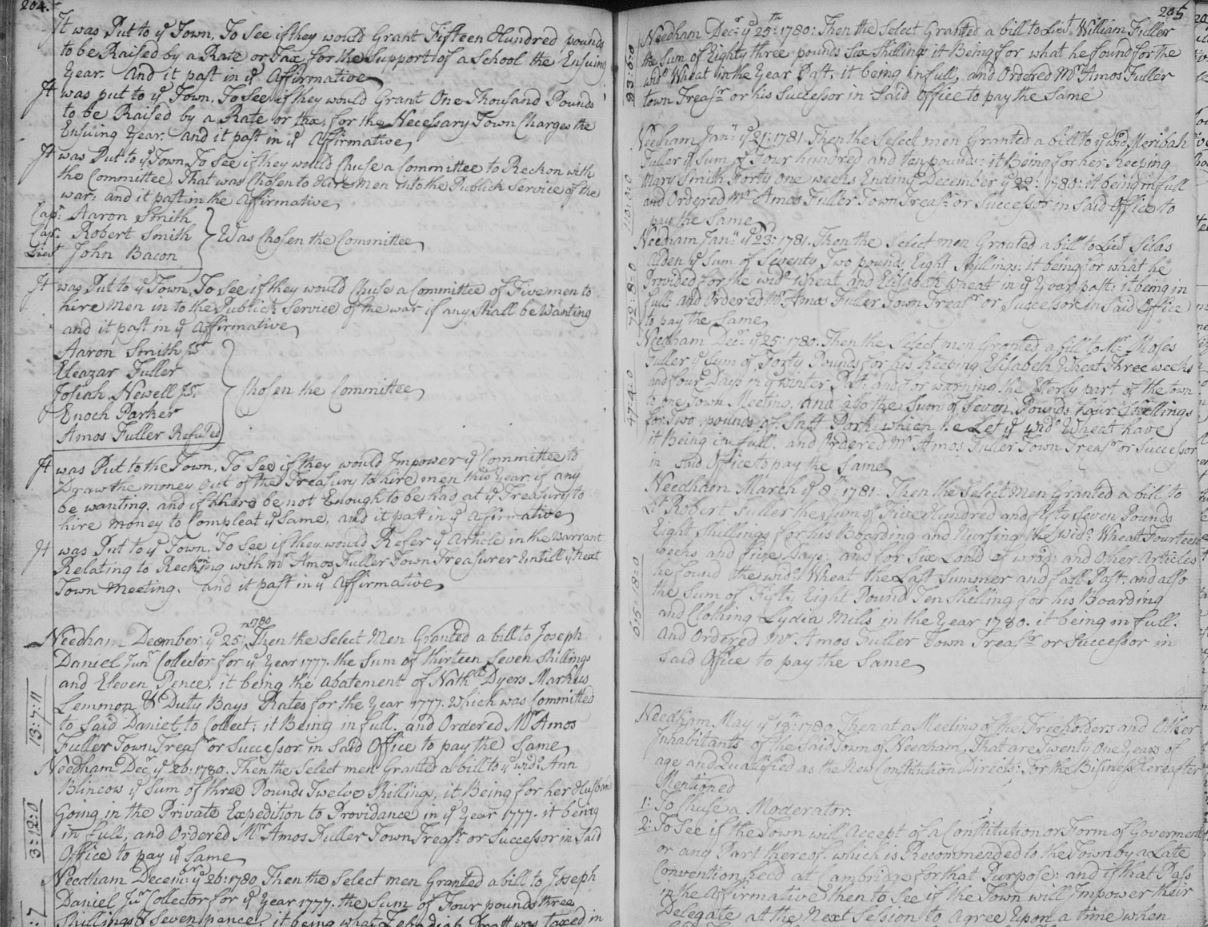 204.
It was Put to yͤ Town, To See if they would Grant Fifteen Hundred pounds
to be Raised by a Rate or Tax for the Support of a School the Ensuing
Year. And it past in yͤ Affirmative
It was put to yͤ Town, To See if they would Grant One Thousand Pounds
to be Raised by a Rate or tax, for the Necessary Town Charges the
Ensuing Year. and it past in yͤ Affirmative
It was Put to yͤ Town, To See if they would Chuse a Committee to Reckon with
the Committee That was Chosen to Hire Men into the Publick Service of the
war, and it past in the Affirmative
Cap: Aaron Smith
Cap: Robert Smith
Lieut John Bacon
Was Chosen the Committee
It was Put to yͤ Town, To See if they would Chuse a Committee of Five men to
hire Men in to the Publick Service of the war if any Shall be Wanting
and it past in yͤ Affirmative
Aaron Smith Jr
Eleazar Fuller
Josiah Newell Jr
Enoch Parker
Amos Fuller Refused
Chosen the Committee
It was Put to the Town, To See if they would Impower yͤ Committee to
Draw the money out of the Treasury to hire men this year, if any
be wanting, and if there be not Enough to be had at yͤ Treasury to
hire money to Compleat yͤ Same, and it past in yͤ Affirmative
It was Put to yͤ Town, To See if they would Refer yͤ Article in the Warrant
Relating to Recking with Mr Amos Fuller Town Treasurer Untill yͤ Next
Town Meeting. and it past in yͤ Affirmative
Needham December yͤ 25: 1780 Then the Select Men Granted a bill to Joseph
Daniel Junr Collector for yͤ Year 1777. the Sum of thirteen Seven Shillings
and Eleven Pence, it being the Abatement of Nathl Dyers Markus
Lemmon & Duty Bays Rates for the Year 1777. Which was Committed
to Said Daniel to Collect; it Being in full, and Ordered Mr Amos
Fuller Town Treasr or Successor in Said Office to pay the Same
13:7:11
Needham Decr yͤ 26: 1780. Then the Select men Granted a bill to yͤ widw Ann
Blincow yͤ Sum of three Pounds Twelve Shillings, it Being for her Husband
Going in the Private Expedition to Providance in yͤ Year 1777. it being
in full, and Ordered Mr Amos Fuller Town Treasr or Successor in Said
Office to pay yͤ Same
3:12:0
Needham Decemr yͤ 26: 1780 Then the Select men Granted a bill to Joseph
Daniel Jr Collector for yͤ Year 1777. the Sum of Four pounds three
Shillings & Seven pence, it being what was taxed in
205
Needham Decr yͤ 25th 1780: Then the Select Granted a bill to Lieut William Fuller
the Sum of Eighty three pounds Six Shillings it Being for what he found for the
widw Wheat in the Year Past, it being in full, and Ordered Mr Amos Fuller
town Treasr or his Successor in Said office to pay the Same
83:6:0
Needham Janr yͤ 21: 1781. Then the Select men Granted a bill to yͤ widw Meribah
Fuller yͤ Sum of Four hundred and ten pounds: it Being for her Keeping
Mary Smith Forty one weeks Ending December yͤ 22: 1780: it being in full
and Ordered Mr Amos Fuller Town Treasr or Successor in Said Office to
pay the Same
410:0:0
Needham Janr yͤ 23: 1781. Then the Select men Granted a bill to Lieut Silas
Alden yͤ Sum of Seventy Two pounds, Eight Shillings: it being for what he
Provided for the widw Wheat and Elisabeth Wheat in yͤ Year past; it being in
full and Ordered Mr Amos Fuller Town Treasr or Successor in Said Office
to pay the Same
72:8:0
Needham Decr yͤ 25: 1780. Then the Select men Granted a bill to Mr Moses
Fuller yͤ Sum of Forty Pounds for his Keeping Elisabeth Wheat three weeks
and four Days in yͤ winter Past, and for warning the Part of the town
to one town Meeting, and also the Sum of Seven Pounds four Shillings
for Two pounds of Salt Pork which he Let yͤ widw Wheat have
it Being in full, and Ordered Mr Amos Fuller Town Treasr or Successor
in Said Office to pay the Same
47:4:0
Needham March yͤ 8th 1781. Then the Select Men Granted a bill to
Lt Robert Fuller the Sum of Five Hundred and fifty Seven Pounds
Eight Shillings for his Boarding and Nursing the Widw Wheat Fourteen
weeks and Five Days: and for Six Load of wood and Other Articles
he found the widw Wheat the Last Summer and Fall Past. and also
the Sum of Fifty Eight Pound Ten Shilling for his Boarding
and Clothing Lydia Mills in the Year 1780. it being in full.
and Ordered Mr Amos Fuller Town Treasr or Successor in
Said Office to pay the Same
615:18:0
Needham May yͤ 1780. Then at a Meeting of the Freeholders and Other
Inhabitants of the Said Town of Needham, That are Twenty One Years of
age and Qualified as the New Constitution Directs: For the Bisiness hereafter
Mentioned
1: To Chuse a Moderator.
2: To See if the Town will Accept of a Constitution or Form of Goverment
or any Part thereof, which is Recommended to the Town by a Late
Convention held at Cambridge for that Purpose: and if that Pass
in the Affirmative then to See if the Town will Impower their
Delegate at the Next Session to Agree Upon a time when